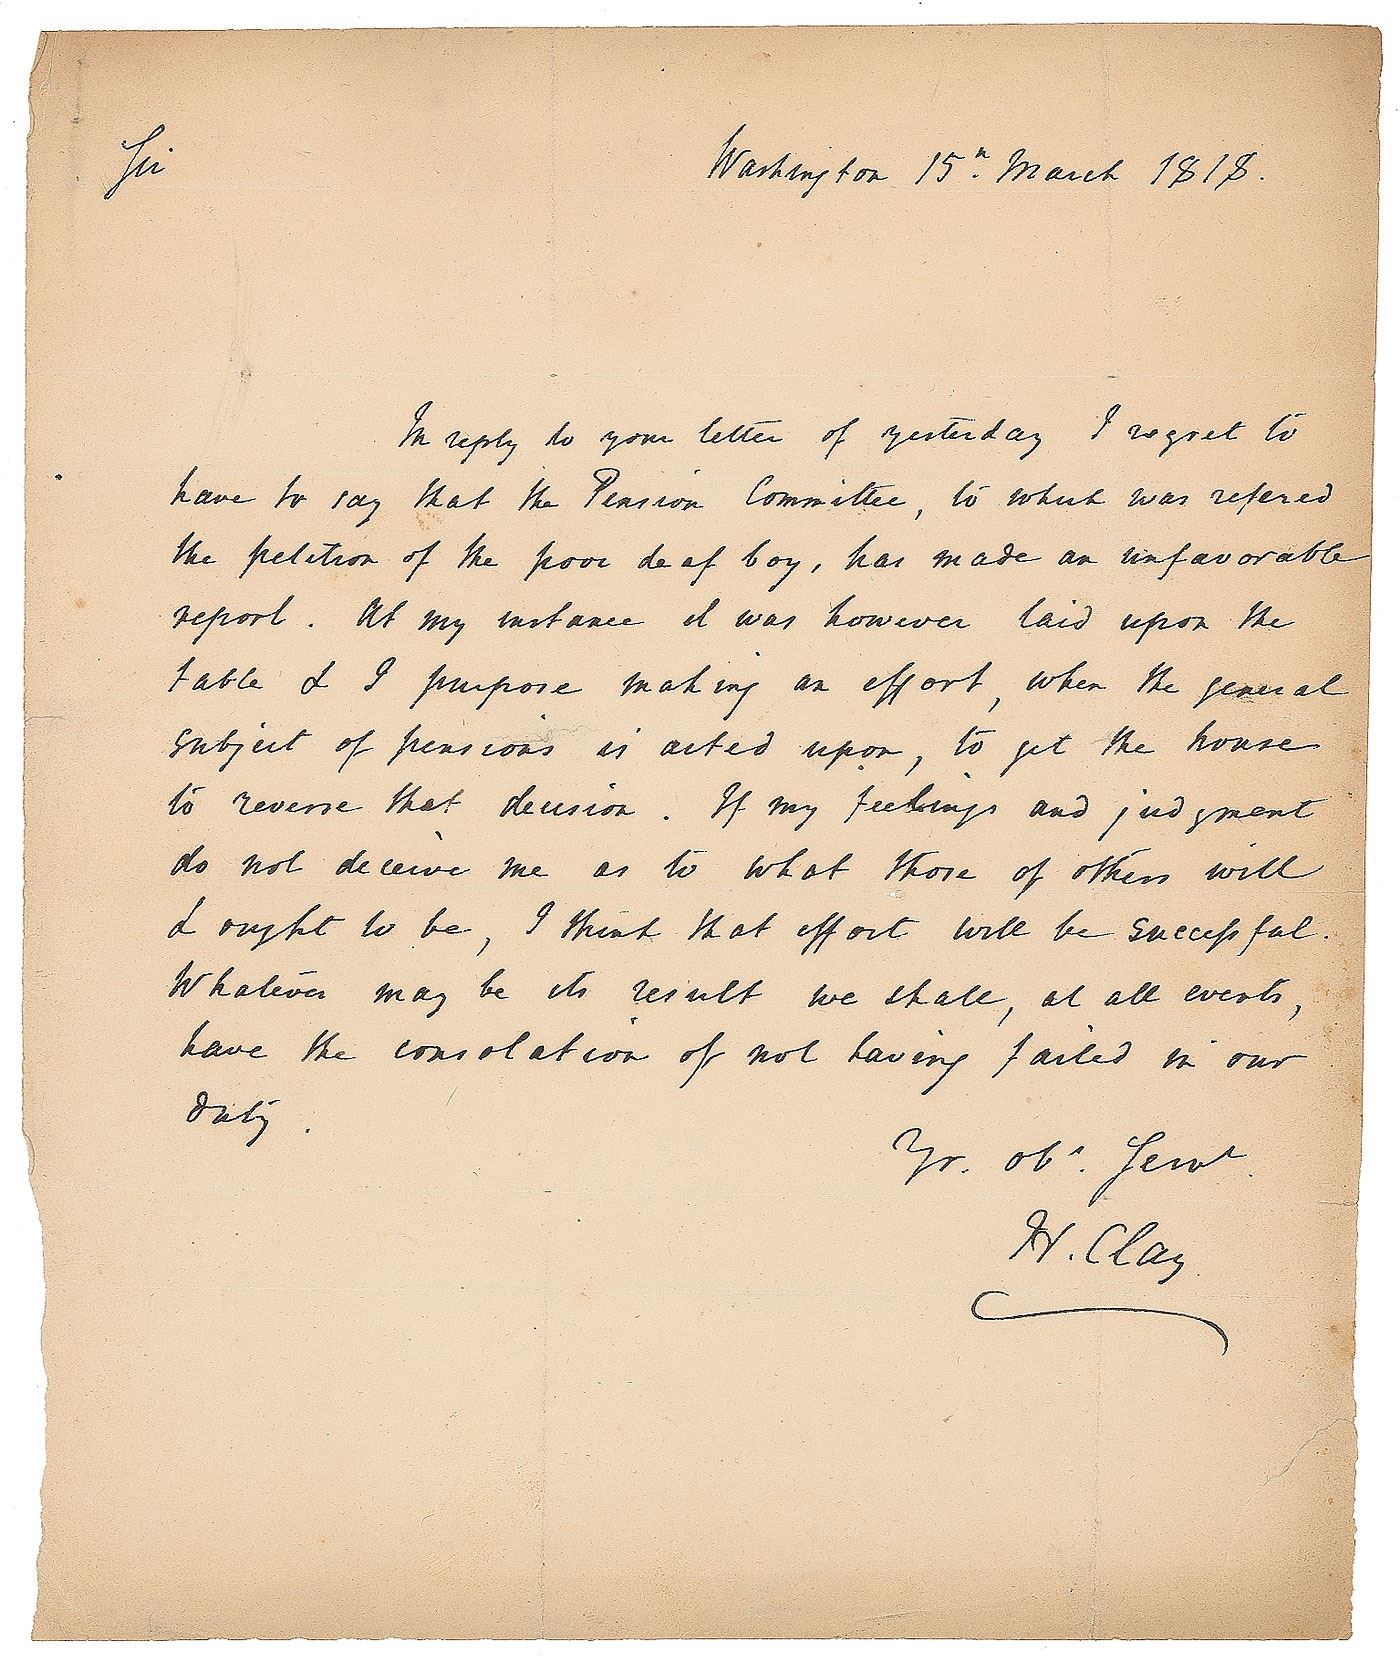 Sir
Washington 15h. March 1818.
In reply to your letter of yesterday I regret to
have to say that the Pension Committee, to which was refered
the petition of the poor deaf boy, has made an unfavorable
report. At my instance it was however laid upon the
table & I purpose making an effort, when the general
subject of pensions is acted upon, to get the house
to reverse that decision. If my feelings and judgment
do not deceive me as to what those of others will
& ought to be, I think that effort will be successful.
Whatever may be its result we shall, at all events,
have the consolation of not having failed in our
duty.
Yr. obt. Servt.
H. Clay